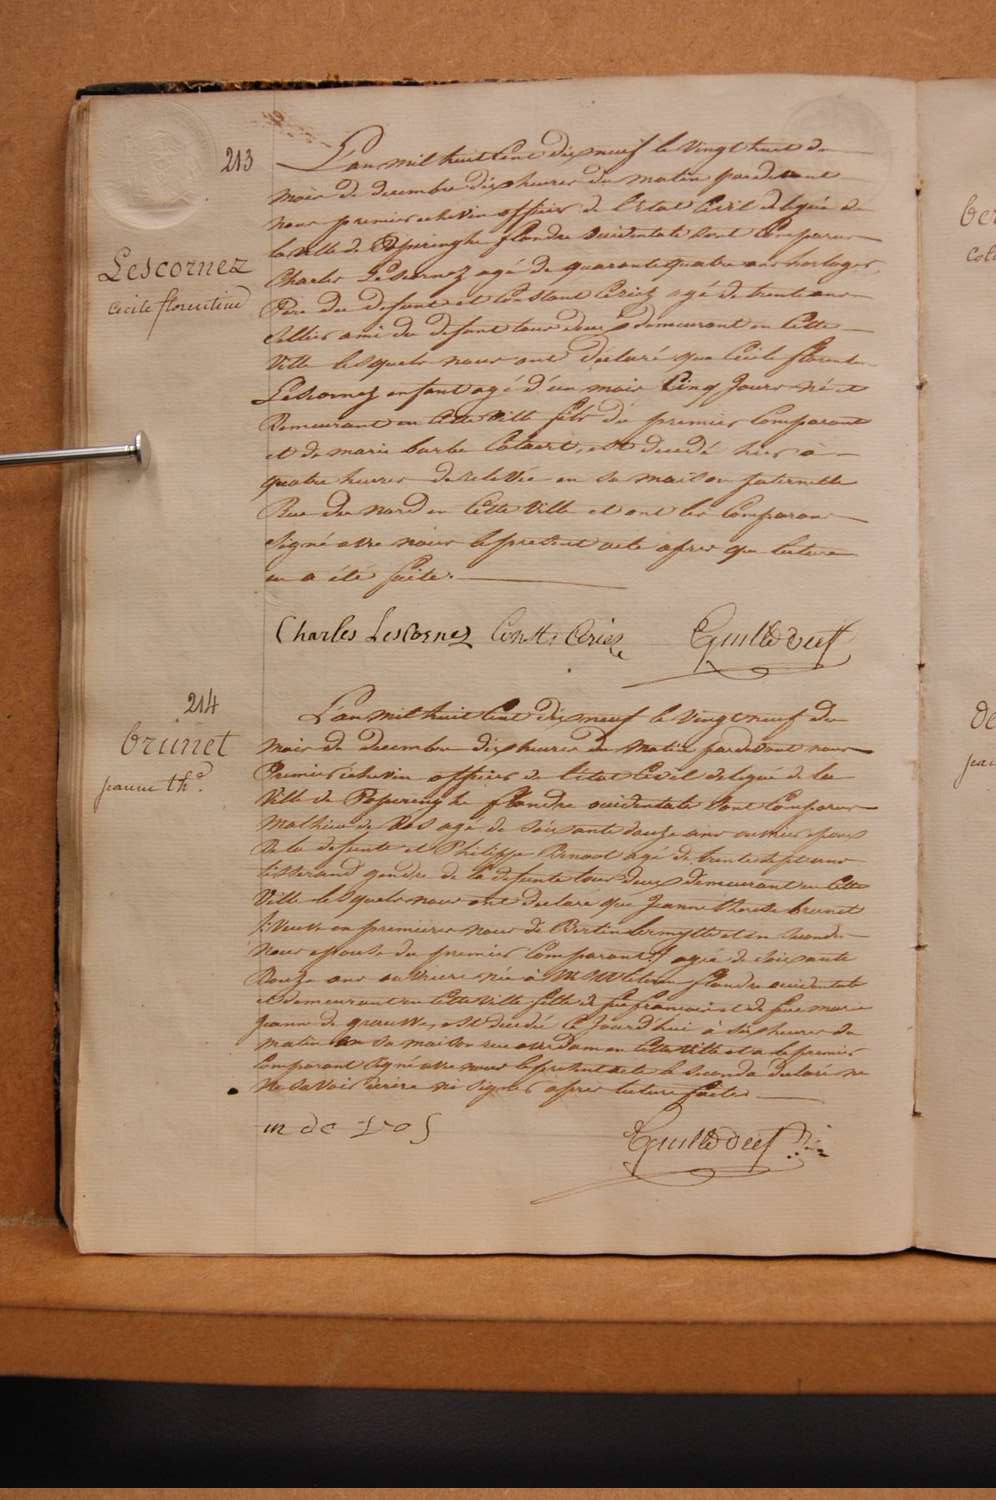 213
Lescornez
Cecile florentine
L'an mil huit Cent dix neuf le vingt huit du
mois de decembre dix heures du matin pardevant
nous premier echevin officier de l'Etat Civil delegué de
la ville de Poperinghe flandre occidentale sont Comparus
Charles Lescornez agé de quarante quatre ans horloger,
Père du defunt et Constant Criez agé de trente ans
Sellier ami du defunt tous deux demeurant en Cette
Ville lesquels nous ont declaré que Cecile florentine
Lescornez enfant agé d'un mois Cinq Jours né et
Demeurant en Cette Ville fils du premier Comparant
et de marie barbe, est decedé hier à
quatre heures de relevée en sa maison paternelle
Rue du Nord en Cette Ville et ont les Comparans
Signé avec nous le present acte apres que lecture
en a été faite.
Charles Lescornez Const: Criez
214
brunet
jeanne thse
L'an mil huit Cent dix neuf le vingt neuf du
mois de decembre dix heures du matin pardevant nous
Premier echevin officier de l'etat Civil delegué de la
Ville de Poperinghe flandre occidentale sont Comparus
Mathieu de Vos agé de soixante douze ans ouvrier epoux
De la defunte et Philippe agé de trente sept ans
tisserand gendre de la defunte tous deux demeurant en Cette
Ville lesquels nous ont declaré que Jeanne therese brunet
Veuve en premieres noces de Bertin et en secondes
Noces epouse du premier Comparant agée de soixante
Douze ans ouvriere née à flandre occidentale
et demeurant en Cette Ville fille de feu françois et de feue marie
Jeanne de, est decedée Ce Jourd'hui à six heures du
matin en sa maison rue en Cette Ville et a le premier
Comparant signé avec nous le present acte le second a declaré ne
Savoir écrire ni signer apres lecture faite.
m de vos